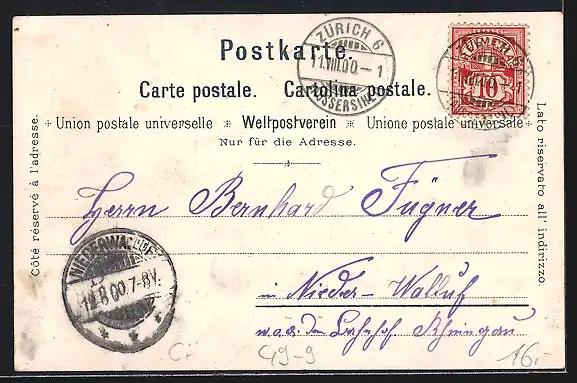 Postkarte.
Carte postale. Cartolina postale.
Union postale universelle * Weltpostverein * Unione postale universale
Nur für die Adresse.
Côté réservé à l'adresse.
Lato riservato all' indirizzo.
ZÜRICH 6
11.VIII.00.-1
AUSSERSIHL
10
Herrn Bernhard Fügner
in Nieder-Walluf
Bahnhof Rheingau
NIEDERWALLUF
12.8.00.7-8V.
C-
49-9
16.-